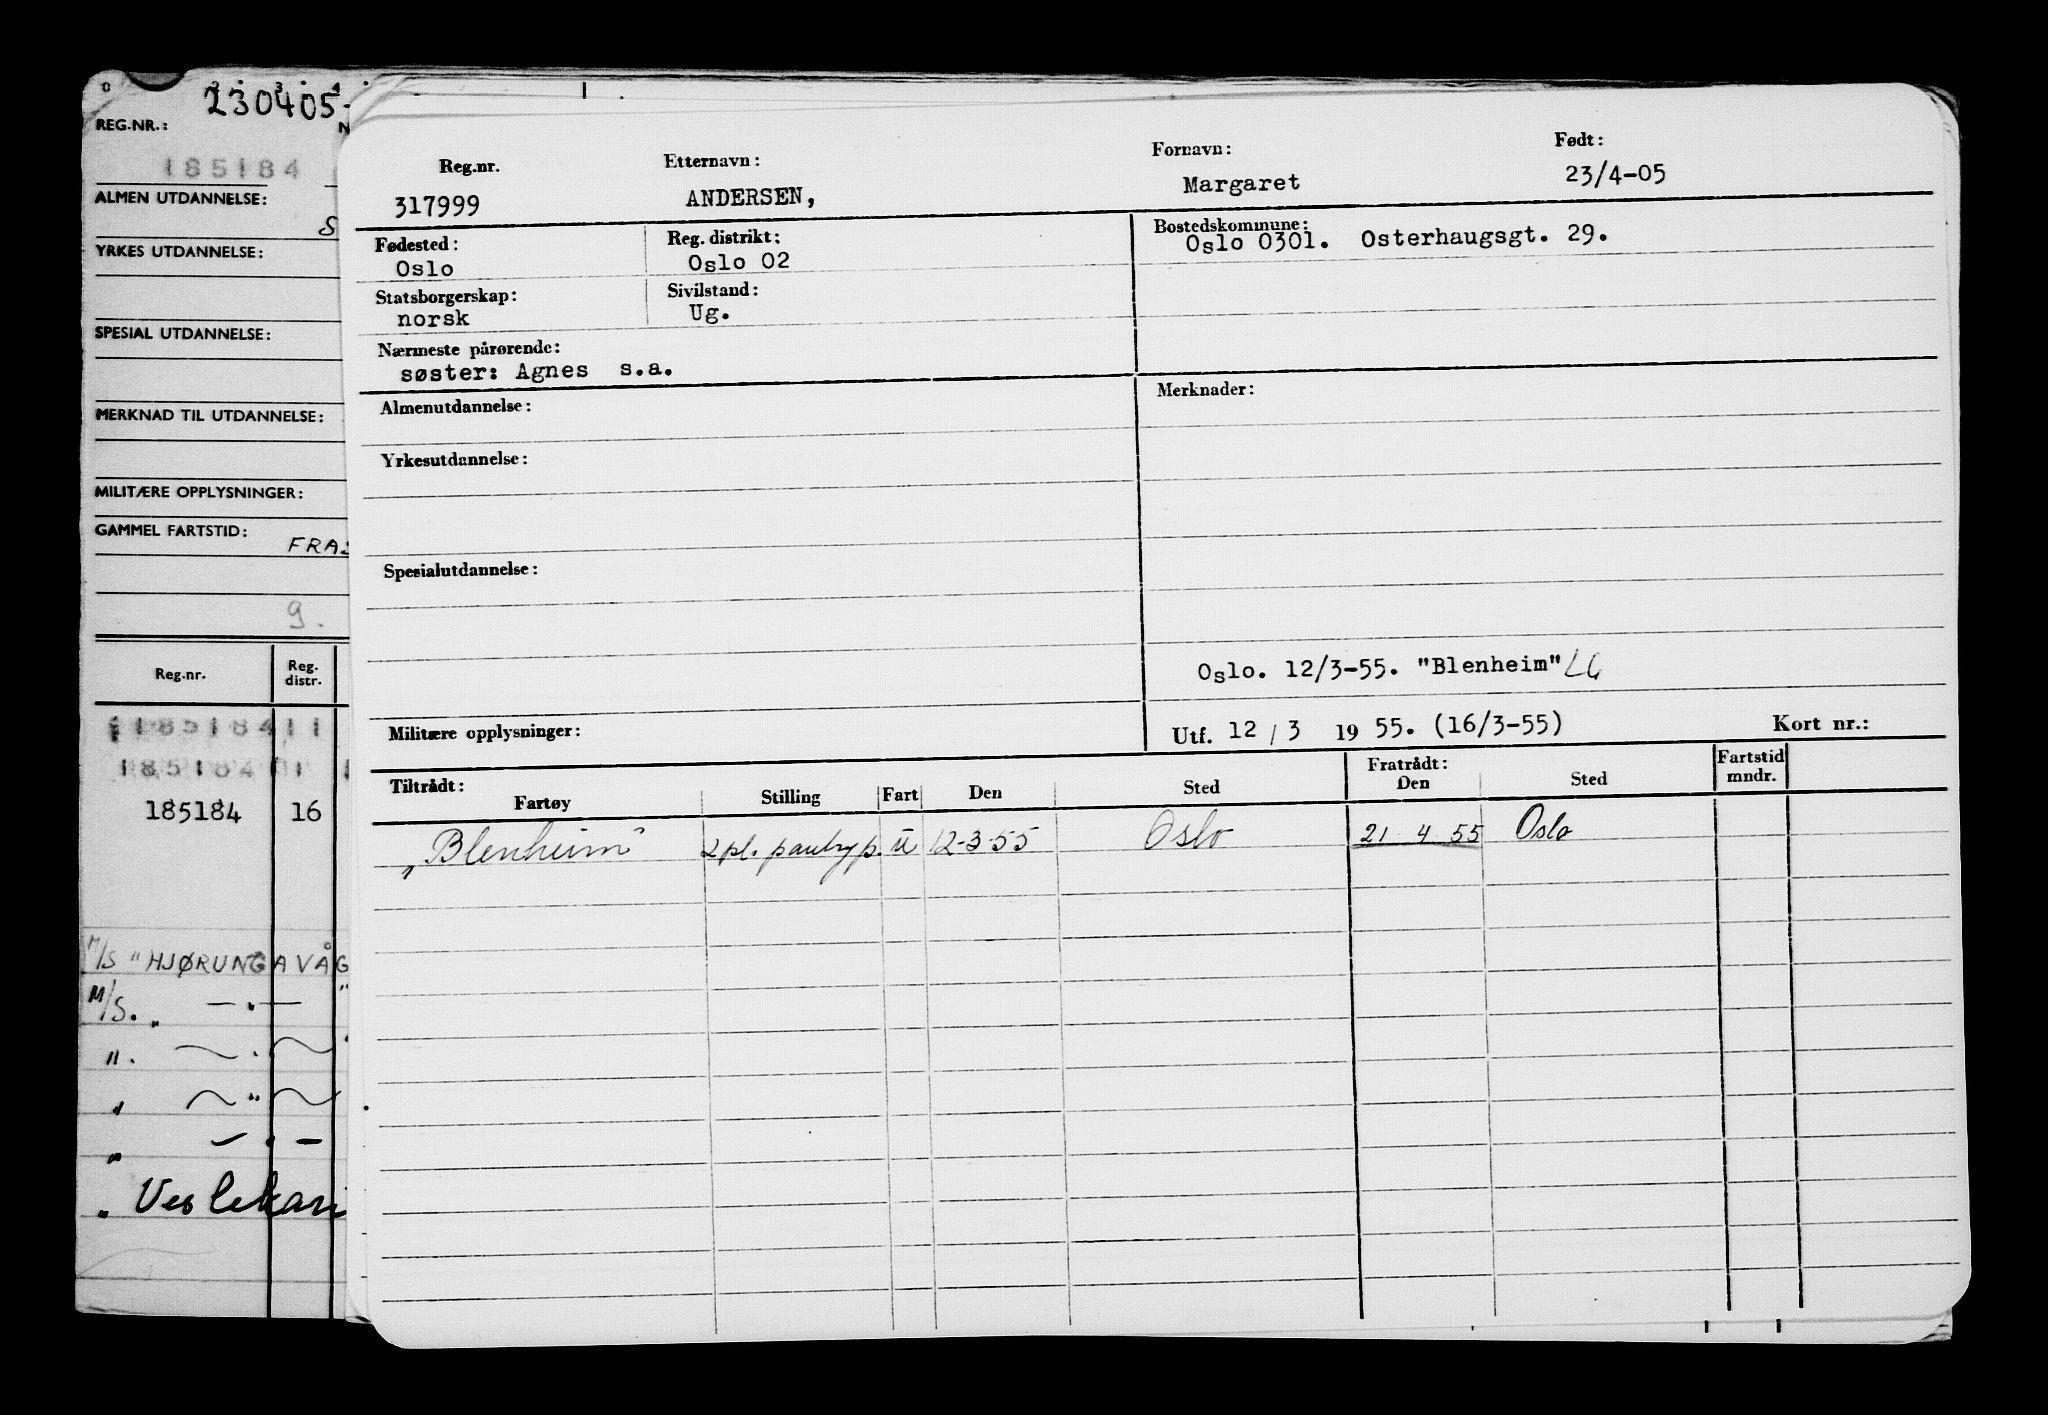 230405-
REG.NR.:
185184
ALMEN UTDANNELSE:
S
YRKES UTDANNELSE:
SPESIAL UTDANNELSE:
MERKNAD TIL UTDANNELSE:
MILITÆRE OPPLYSNINGER:
GAMMEL FARTSTID:
FRAS
9.
Reg.nr. Reg. distr.
185184 11
185184 01
185184 16
M/S "HJØRUNGAVÅG
M/S. „ — . — "
". — . —
„ — " —
„ — . —
„ Veslekari
Reg.nr. Etternavn: Fornavn: Født:
317999 ANDERSEN, Margaret 23/4-05
Fødested: Reg. distrikt: Bostedskommune:
Oslo Oslo 02 Oslo 0301. Osterhaugsgt. 29.
Statsborgerskap: Sivilstand:
norsk Ug.
Nærmeste pårørende:
søster: Agnes s.a.
Almenutdannelse: Merknader:
Yrkesutdannelse:
Spesialutdannelse:
Oslo. 12/3-55. "Blenheim" LG
Militære opplysninger: Utf. 12 / 3 19 55. (16/3-55) Kort nr.:
Tiltrådt: Fratrådt: Fartstid
Fartøy Stilling Fart Den Sted Den Sted mndr.
„Blenheim" 2 pl. pantryp. U 12-3-55 Oslo 21 4 55 Oslo